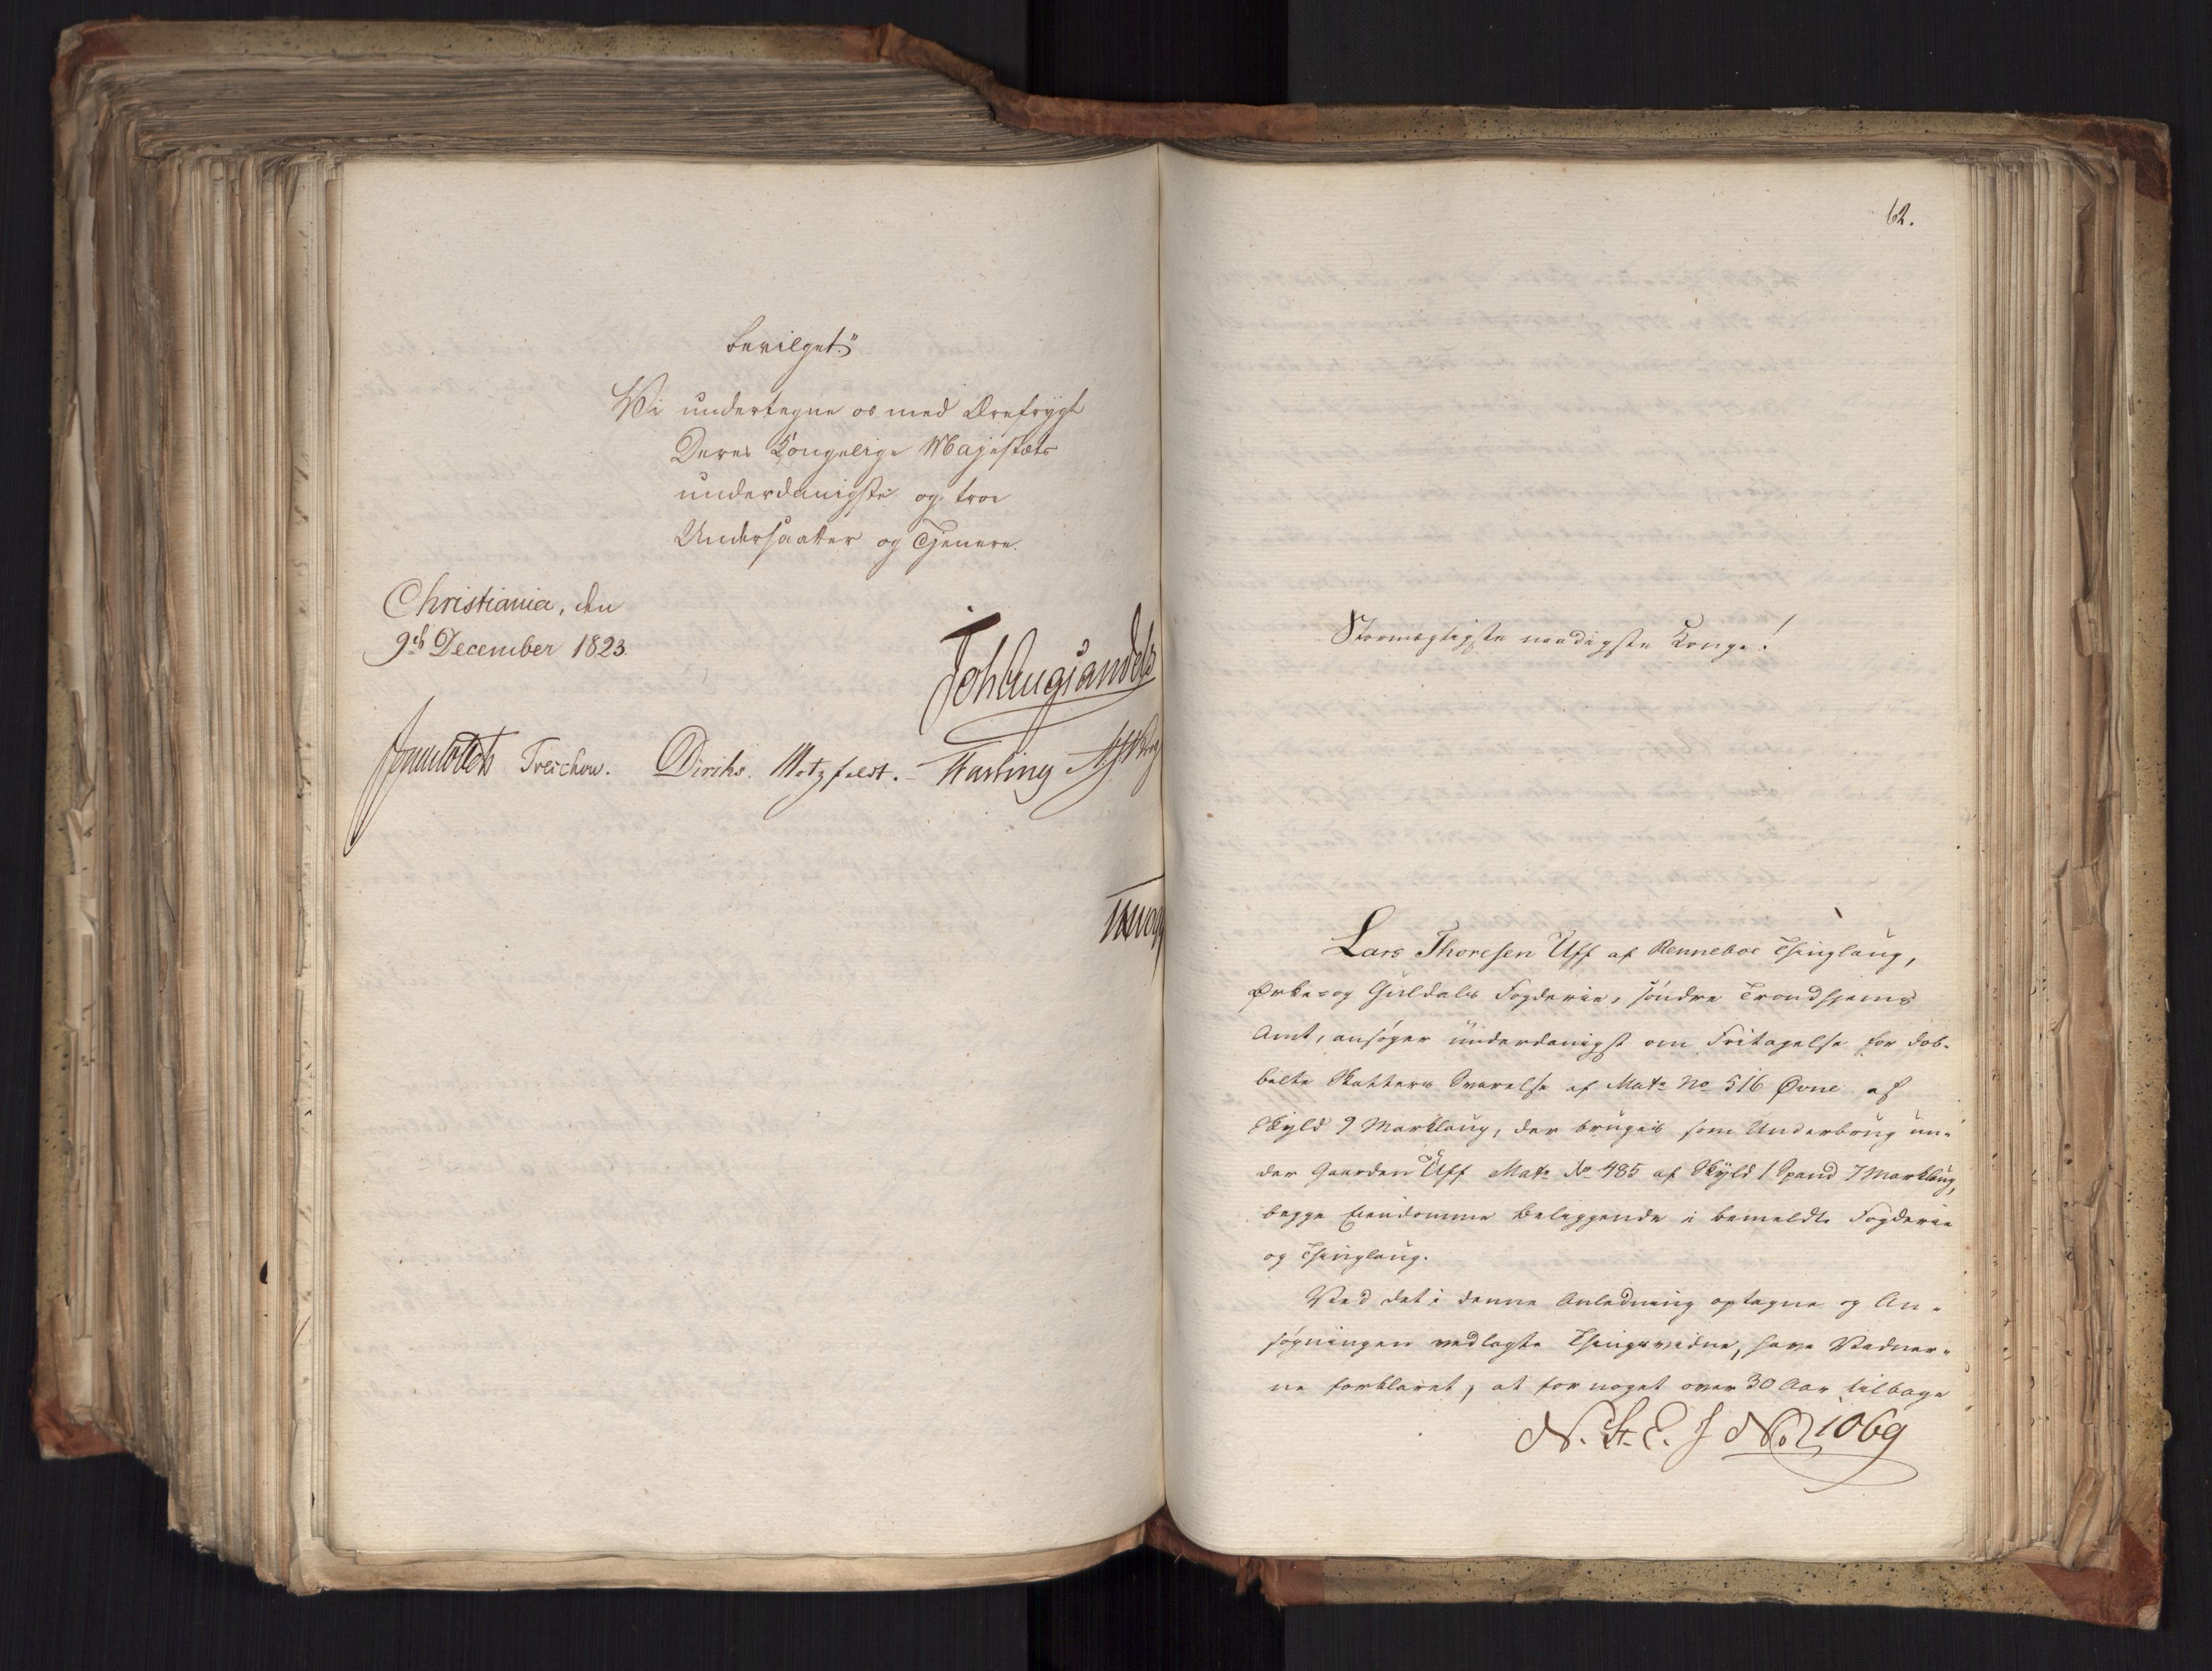 bevilget."
Vi undertegne os med Ærefrygt
Deres Kongelige Majestæts
underdanigste og troe
Undersaatter og Tjenere.
Christiania, den
9de December 1823.
Joh Aug Sandels
Sommerhielm Treschow. Diriks. Motzfeldt. Fasting
62.
Stormægtigste naadigste Konge!
Lars Thoresen Uff af Renneboe Thinglaug,
Ørke- og Guldals Fogderie, söndre Trondhjems
Amt, ansøger underdanigst om Fritagelse for dob-
belte Skatters Svarelse af Matr No 516 Øvne af
Skyld 9 Marklaug, der bruges som Underbrug un-
der Gaarden Uff Matr No 485 af Skyld 1 Spand 7 Marklaug,
begge Eiendomme beliggende i bemeldte Fogderie
og Thinglaug.
Ved det i denne Anledning optagne og An-
søgningen vedlagte Thingsvidne, have Vidner-
ne forklaret, at for noget over 30 Aar tilbage
N. St. E. J No 1069